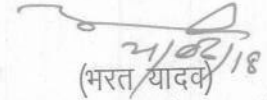 21/02/18
(भरत यादव)